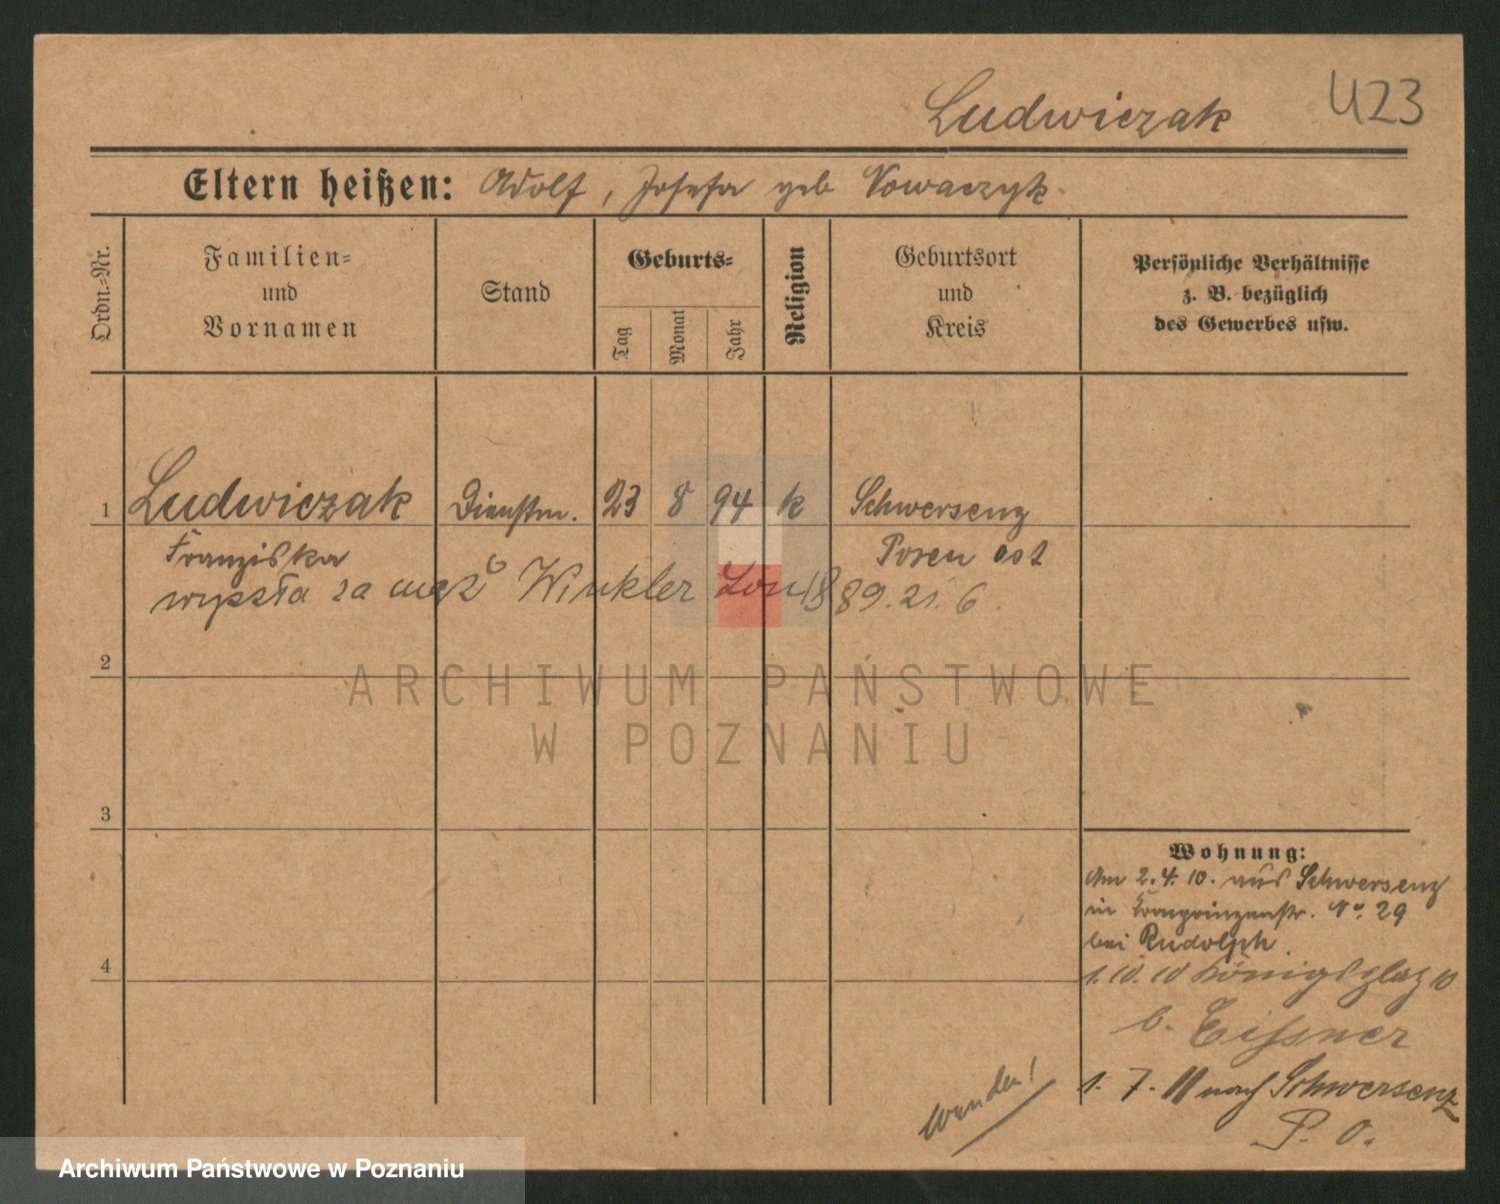 Ludwiczak U23
Eltern heißen: Adolf, Josefa geb Nowaczyk.
Ordn.-Nr.
Familien-
und
Vornamen
Stand
Geburts-
Tag
Monat
Jahr
Religion
Geburtsort
und
Kreis
Persönliche Verhältnisse
z. B. bezüglich
des Gewerbes usw.
1 Ludwiczak Dienstm. 23 8 94 k Schwersenz
Franziska Posen Ost
wyszła za męż Winkler 1889.21.6
2
ARCHIWUM PAŃSTWOWE
W POZNANIU
3
Wohnung:
Am 2.4.10. aus Schwersenz
in Kronprinzenstr. No. 29
bei Rudolph.
4
1.10.10 Königsplatz 10
b. Eissner
1.7.11 nach Schwersenz
P. O.
wenden!
Archiwum Państwowe w Poznaniu